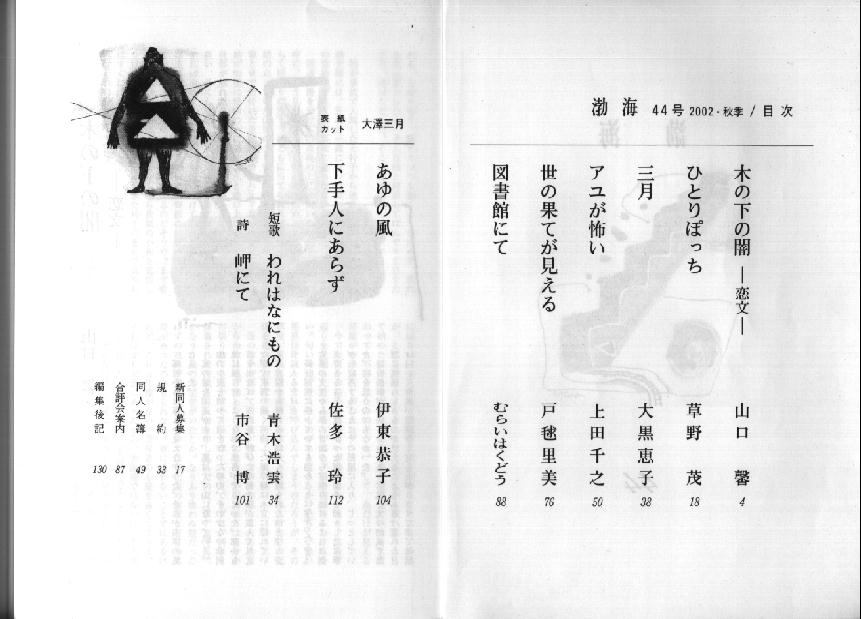 渤海 44号 2002・秋季 / 目次
木の下の闇 ―恋文― 山口 馨 4
ひとりぽっち 草野 茂 18
三月 大黒恵子 38
アユが怖い 上田千之 50
世の果てが見える 戸毬里美 76
図書館にて むらいはくどう 88
表紙 カット 大澤三月
あゆの風 伊東恭子 104
下手人にあらず 佐多 玲 112
短歌 われはなにもの 青木浩雲 34
詩 岬にて 市谷 博 101
新同人募集 17
規約 33
同人名簿 49
合評会案内 87
編集後記 130